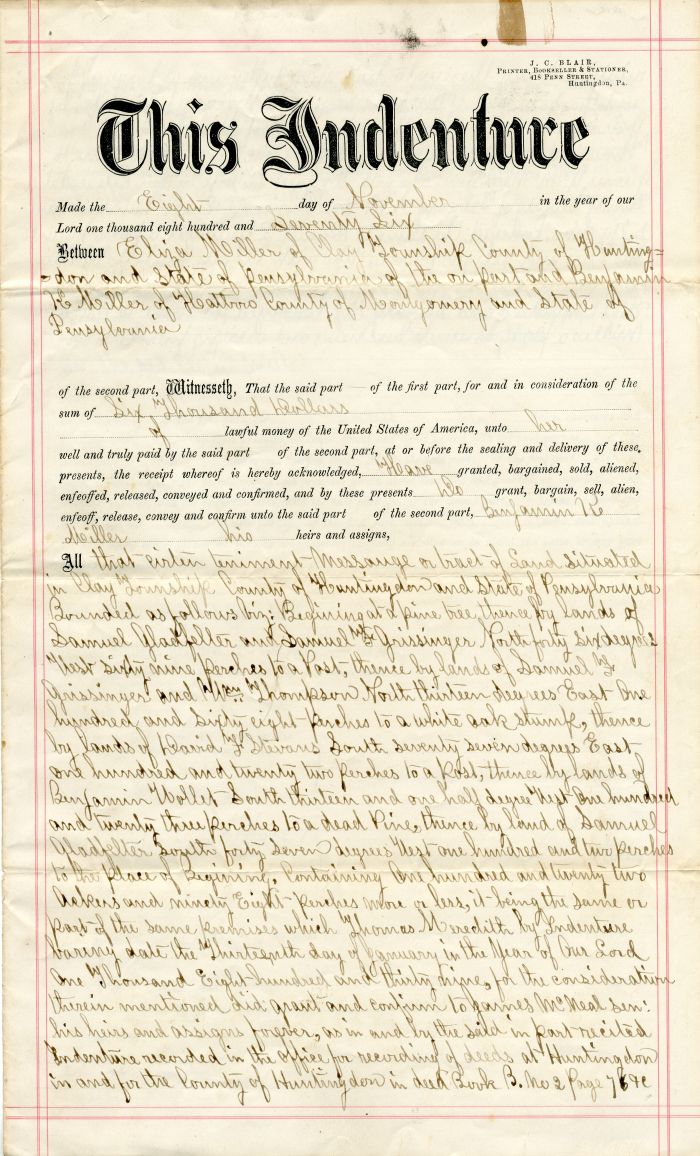 J. C. BLAIR,
PRINTER, BOOKSELLER & STATIONER,
418 PENN STREET,
Huntingdon, Pa.
This Indenture
Made the Eight day of November in the year of our
Lord one thousand eight hundred and Seventy Six
Between Eliza Miller of Clay Township County of Hunting=
=don and State of Pensylvania of the on part and Benjamin
K Miller of Hatboro County of Montgomery and State of
Pensylvania
of the second part, Witnesseth, That the said part of the first part, for and in consideration of the
sum of Six Thousand Dollars
of lawful money of the United States of America, unto her
well and truly paid by the said part of the second part, at or before the sealing and delivery of these
presents, the receipt whereof is hereby acknowledged, Have granted, bargained, sold, aliened,
enfeoffed, released, conveyed and confirmed, and by these presents Do grant, bargain, sell, alien,
enfeoff, release, convey and confirm unto the said part of the second part, Benjamin Ke
Miller his heirs and assigns,
All that cirten teniment Messauge or tract of Land situated
in Clay Township County of Huntingdon and State of Pensylvania
Bounded as follows viz: Begining at a pine tree, thence by lands of
Samuel Gladfelter and Samuel F Grissinger North forty six degrees
West sixty nine perches to a Post, thence by lands of Samuel F
Grissinger and Wm Thompson North thirteen degrees East One
hundred and sixty eight perches to a white oak stump, thence
by lands of David F Stevans South seventy seven degrees East
one hundred and twenty two perches to a post, thence by lands of
Benjamin Wollet South thirteen and one half degree West one hundred
and twenty three perches to a dead Pine, thence by land of Samuel
Gladfelter South forty seven degrees West one hundred and two perches
to the place of begining, Containing One hundred and twenty two
Ackers and ninety Eight perches more or less, it being the same or
part of the same premises which Thomas Meredith by Indenture
baring date the Thirteenth day of January in the Year of Our Lord
One Thousand Eight hundred and thirty nine, for the consideration
therein mentioned did grant and confirm to James McNeal sen:
his heirs and assigns forever, as in and by the said in part recited
Indenture recorded in the Office for recording of deeds at Huntingdon
in and for the County of Huntingdon in deed Book B. No 2 Page